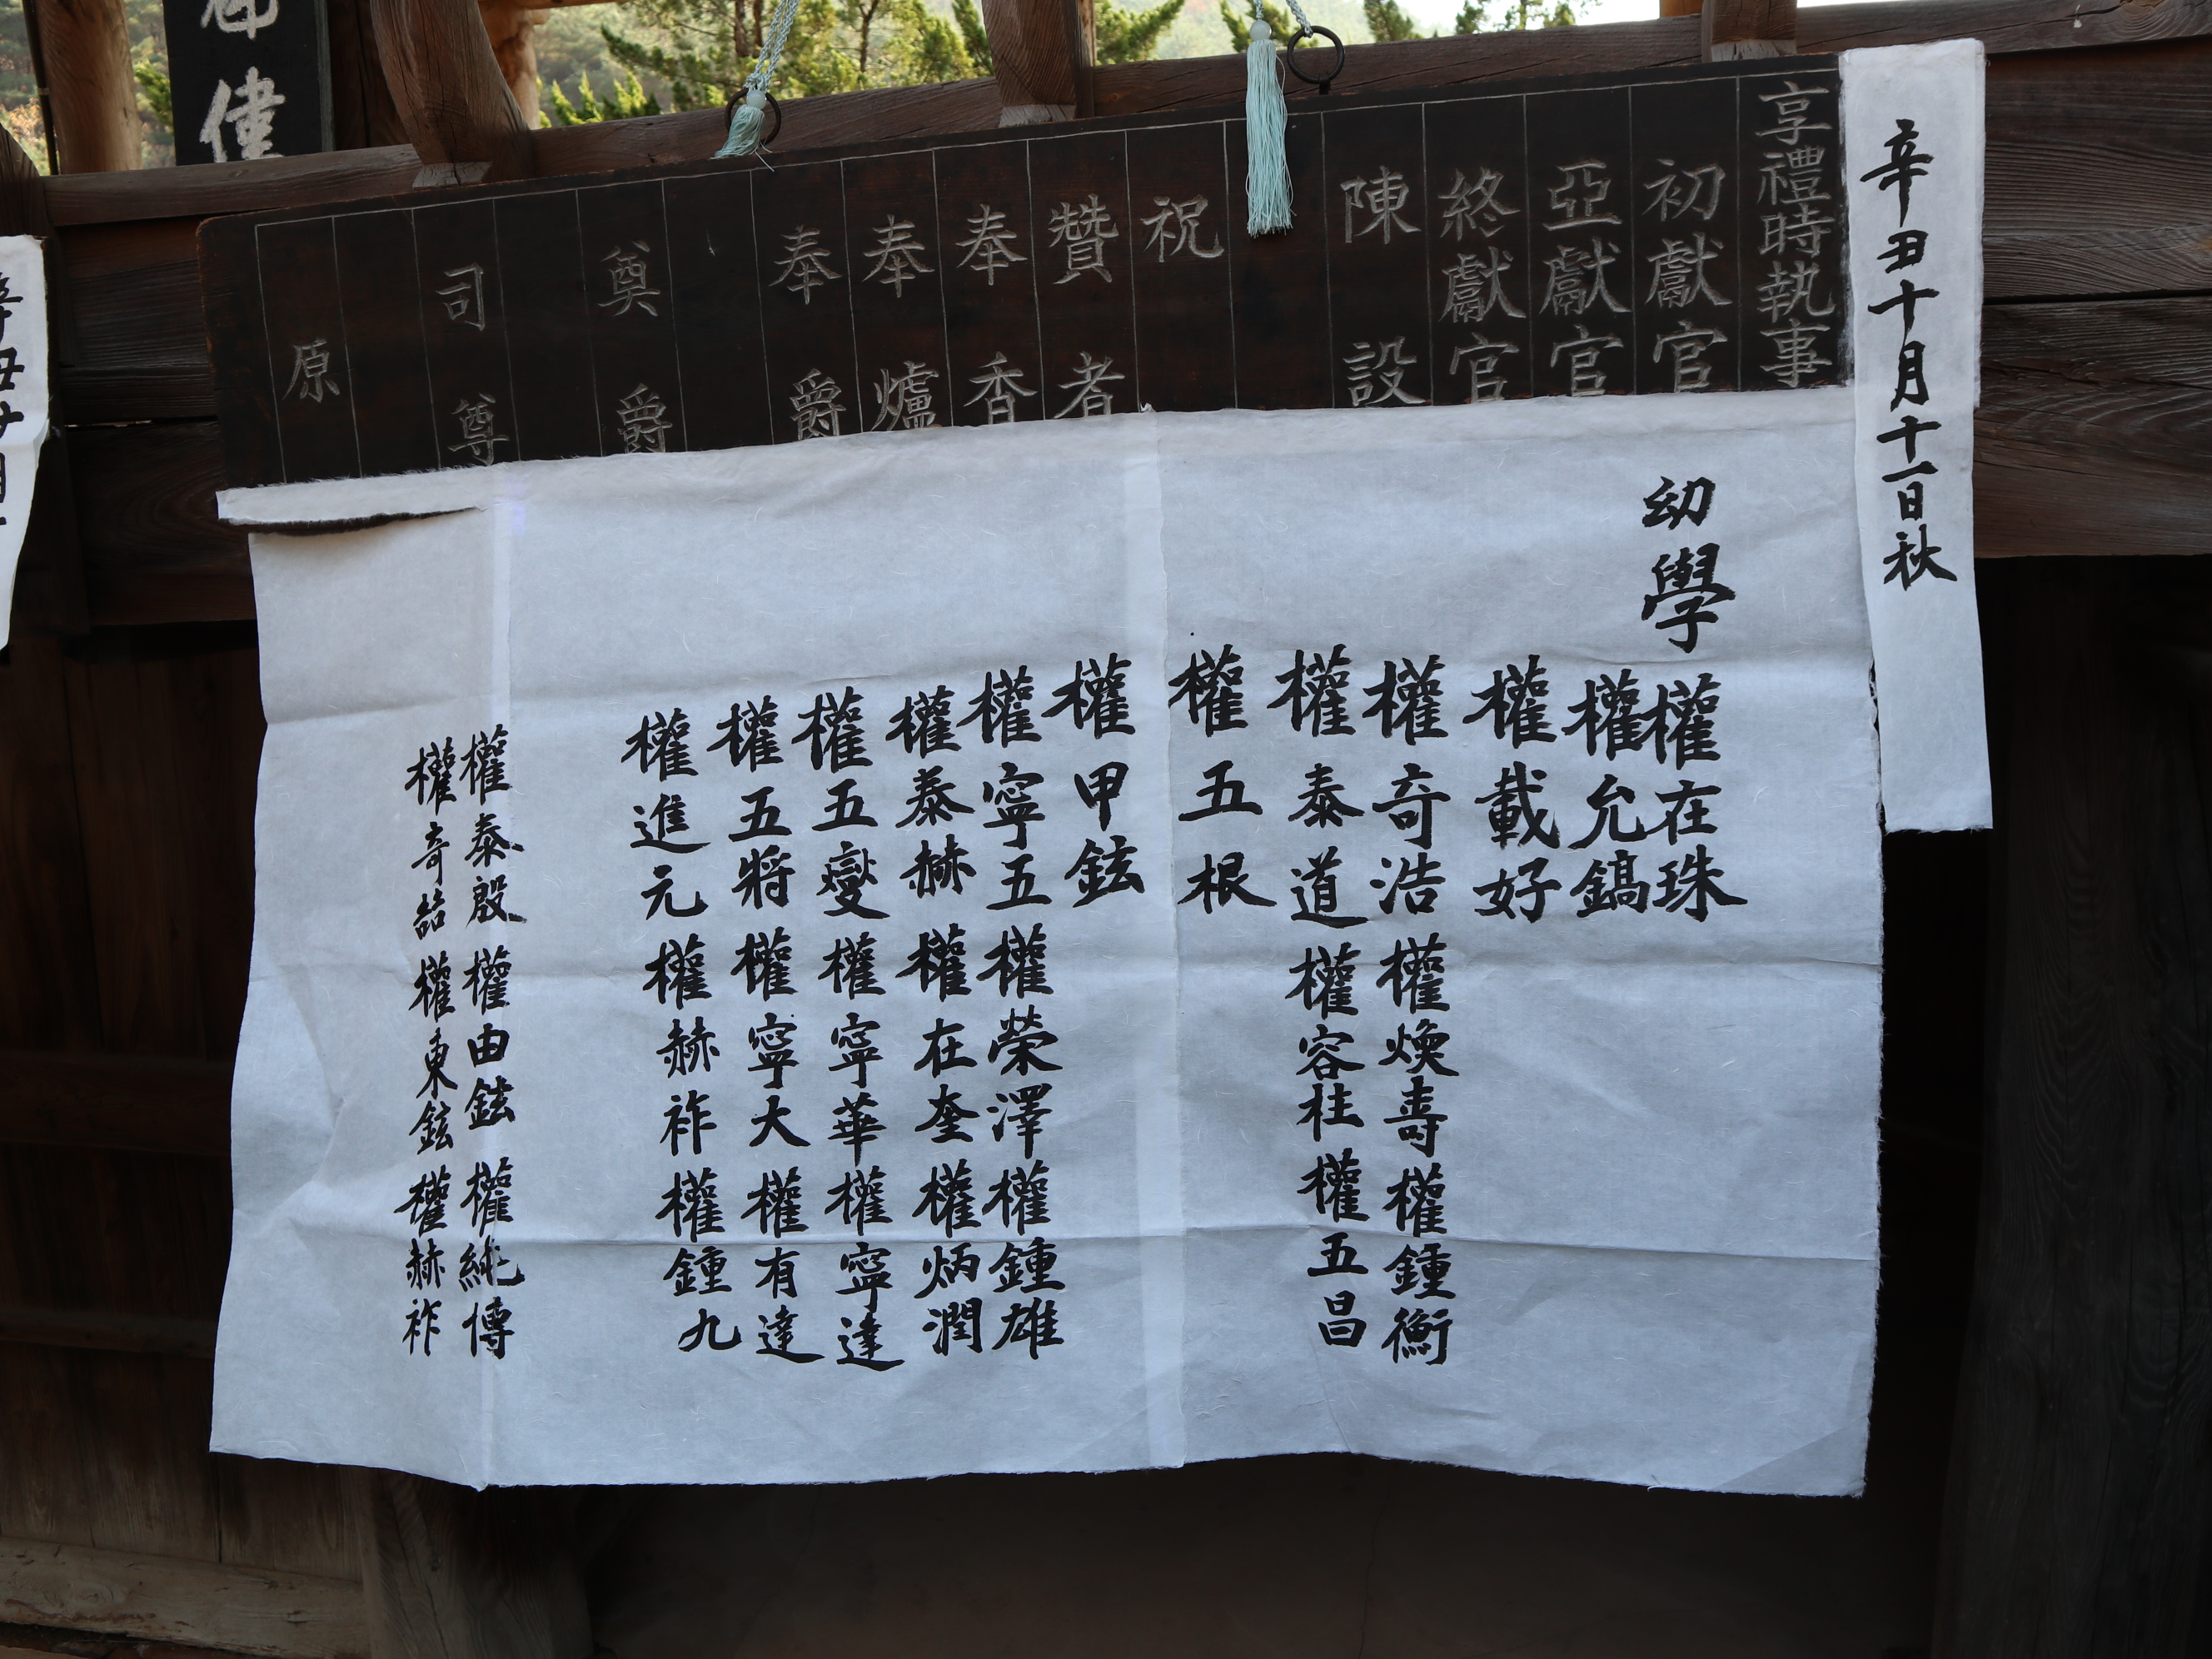 辛丑十月十一日秋
享禮時執事
初獻官
亞獻官
終獻官
陳設
祝
贊者
奉香
奉爐
奉爵
奠爵
司尊
原
幼學 權在珠
權允鎬
權載好
權奇浩 權煥壽 權鍾衡
權泰道 權容柱 權五昌
權五根
權甲鉉
權寧五 權榮澤 權鍾雄
權泰赫 權在奎 權炳潤
權五燮 權寧華 權寧達
權五將 權寧大 權有達
權進元 權赫祚 權鍾九
權泰殷 權由鉉 權純傳
權奇喆 權東鉉 權赫祚
偉
辛丑